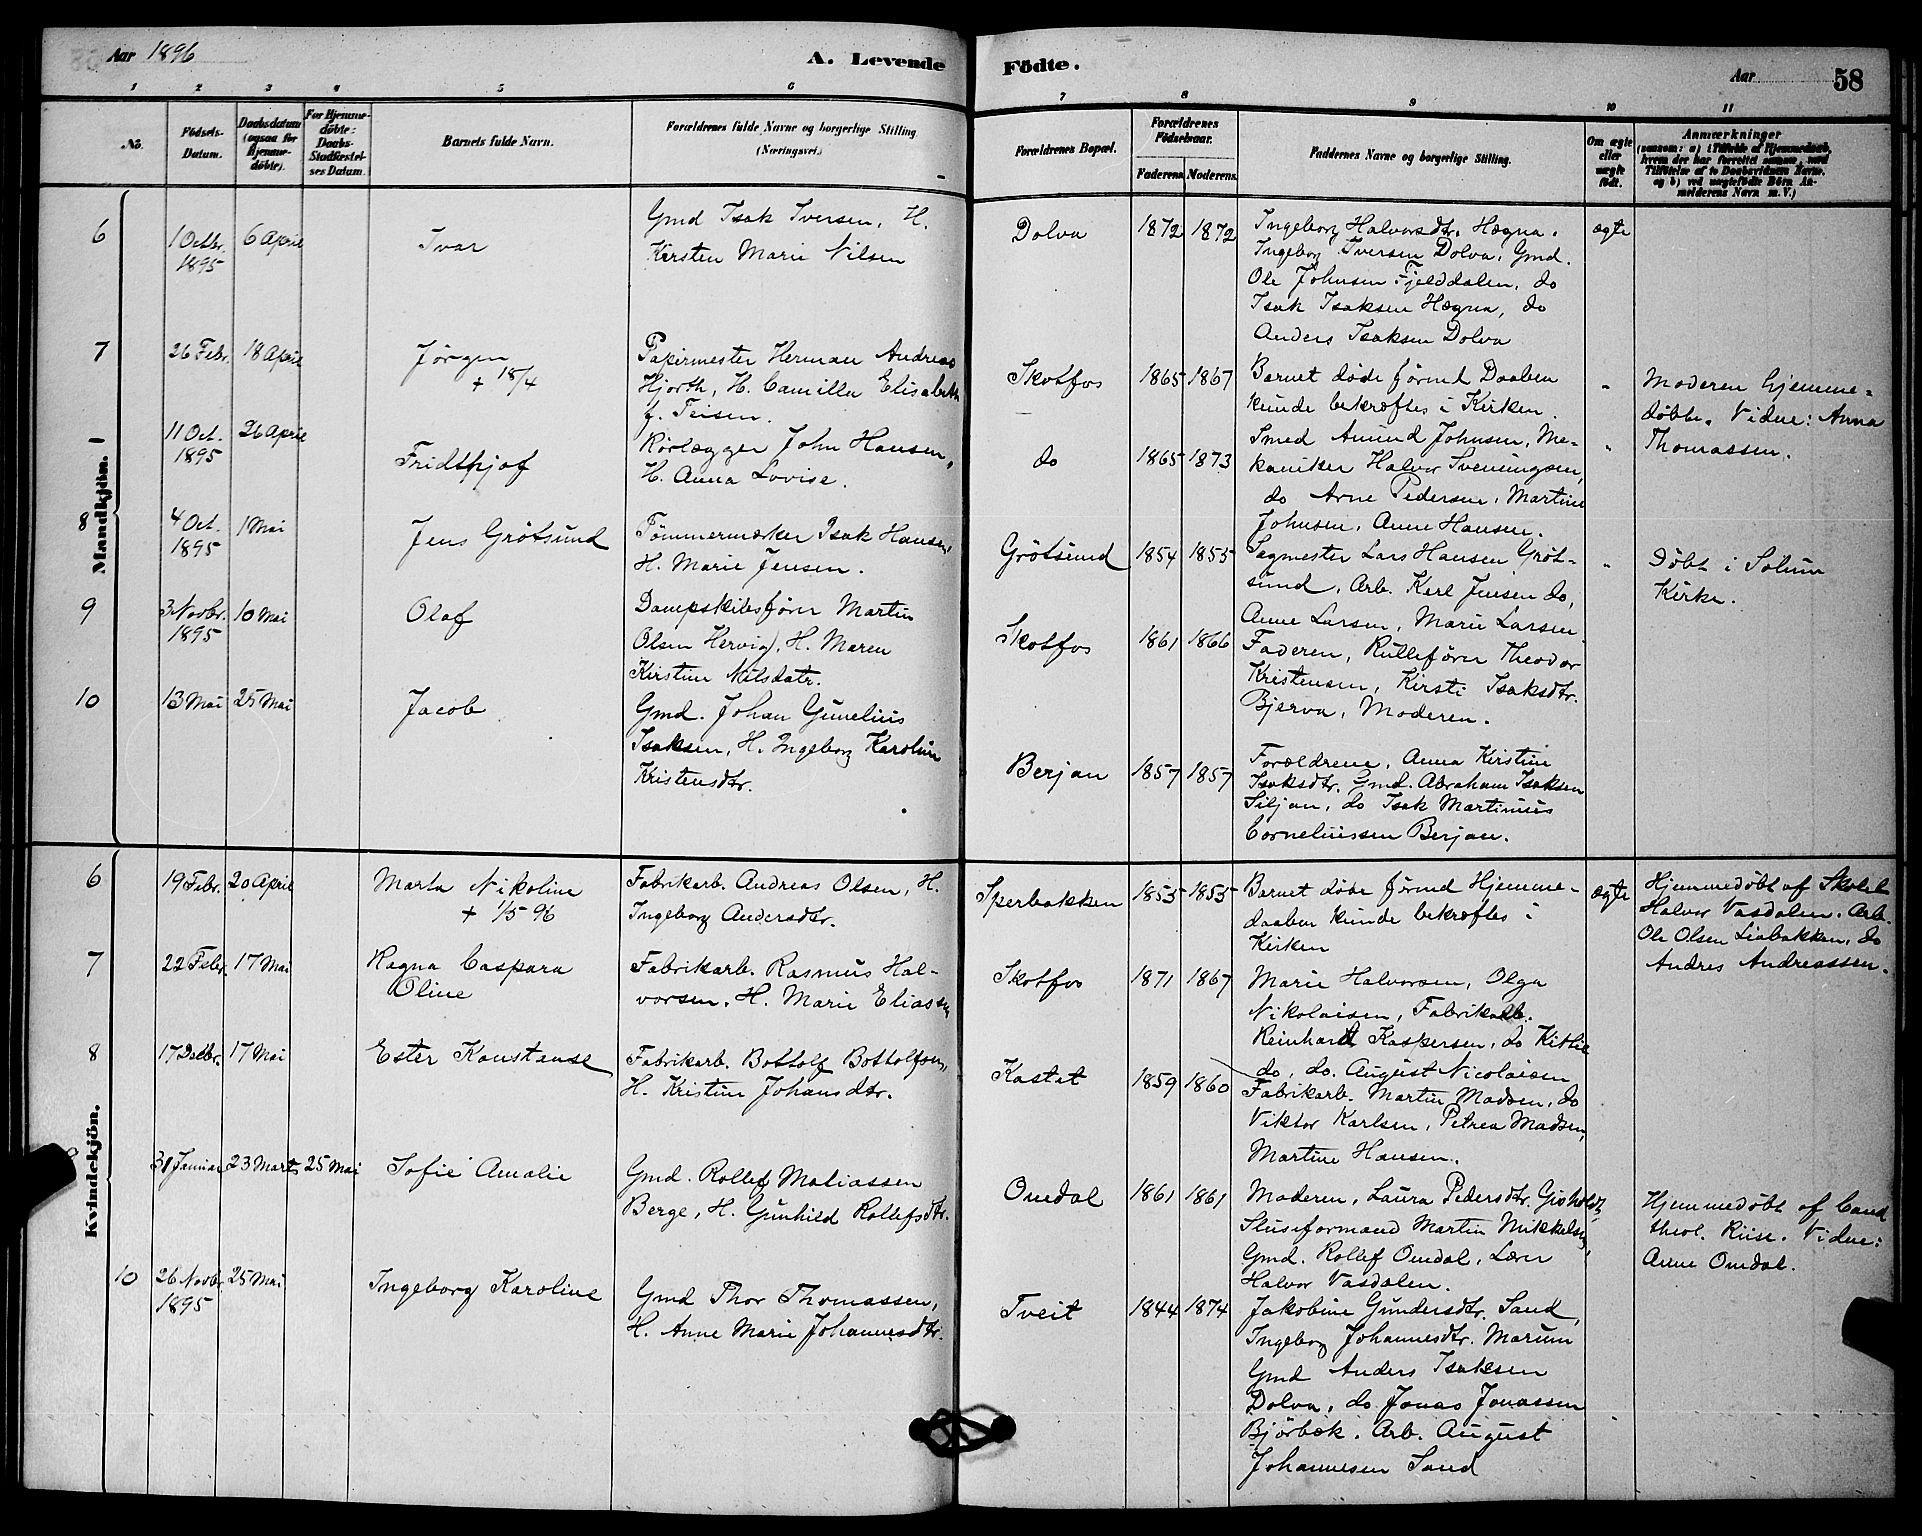 Aar 1896
A. Levende
1 2 3 4 5 6
No.
Födsels-
Datum.
Daabsdatum
(ogsaa for
Hjemme-
döbte).
For Hjemme-
döbte:
Daabs-
Stadfæstel-
ses Datum.
Barnets fulde Navn.
Forældrenes fulde Navne og borgerlige Stilling
(Næringsvei.)
Mandkjön.
6
1 Octbr.
1895
6 April
Ivar
Gmd Isak Iversen, H.
Kirsten Marie Nilsen
7
26 Febr.
18 April
Jörgen
+ 18/4
Papirmester Herman Andreas
Hjorth, H. Camilla Elisabeth
f. Teisen.
11 Oct.
1895
26 April
Fridthjof
Rörlægger John Hansen,
H. Anna Lovise.
8
4 Oct.
1895
1 Mai
Jens Grötsund
Tömmermærker Isak Hansen,
H. Marie Jensen.
9
3 Novbr.
1895
10 Mai
Olaf
Dampskibsförer Martin
Olsen Hervig, H. Maren
Kirstine Nilsdatr.
10
13 Mai
25 Mai
Jacob
Gmd. Johan Gunelius
Isaksen, H. Ingeborg Karoline
Kristensdtr.
Kvindekjön.
6
19 Febr.
20 April
Marta Nikoline
+ 1/5 96
Fabrikarb. Andreas Olsen, H.
Ingeborg Andersdtr.
7
22 Febr.
17 Mai
Ragna Caspara
Oline
Fabrikarb. Rasmus Hal-
vorsen. H. Marie Eliassen
8
17 Decbr.
17 Mai
Ester Konstanse
Fabrikarb. Bottolf Bottolfsen,
H. Kristine Johansdtr.
9
31 Januar
23 Marts
25 Mai
Sofie Amalie
Gmd. Rollef Matiassen
Berge, H. Gunhild Rollefsdtr.
10
26 Novb.
1895
25 Mai
Ingeborg Karoline
Gmd Thor Thomassen,
H. Anne Marie Johannesdtr.
Födte.
Aar
58
7 8 9 10 11
Forældrenes Bopæl.
Forældrenes
Födselsaar.
Faderens. Moderens.
Faddernes Navne og borgerlige Stilling.
Om ægte
eller
uægte
födt.
Anmærkninger
(saasom: a) i Tilfælde af Hjemmedaab,
hvem der har forrettet samme, med
Tilföielse af to Daabsvidners Navne,
og b) ved uægtefödte Börn An-
melderens Navn m. V.)
Dolva
1872 1872
Ingeborg Halvorsdtr. Hægna.
Ingeborg Iversen Dolva, Gmd.
Ole Johnsen Fjelddalen, do
Isak Isaksen Hægna, do
Anders Isaksen Dolva
ægte
Skotfos
1865 1867
Barnet döde förend Daaben
kunde bekræftes i Kirken.
"
Moderen hjemme-
döbte. Vidne: Anna
Thomassen.
do
1865 1873
Smed Amund Johnsen, Me-
kaniker Halvor Sveningsen,
do Arne Pedersen, Martine
Johnsen, Anne Hansen.
"
Grötsund
1854 1855
Sagmester Lars Hansen Gröt-
sund, Arb. Karl Jensen do,
Anne Larsen, Marie Larsen.
"
Döbt i Solum
Kirke.
Skotfos
1861 1866
Faderen, Rulleförer Theodor
Kristensen, Kirsti Isaksdtr.
Bjerva, Moderen.
Berjan
1857 1857
Forældrene, Anna Kirstine
Isaksdtr. Gmd. Abraham Isaksen
Siljan, do Isak Martinius
Corneliussen Berjan.
Sperbakken
1855 1855
Barnet döde förend Hjemme-
daaben kunde bekræftes i
Kirken
ægte
Hjemmedöbt af Skolel.
Halvor Vasdalen. Arb.
Ole Olsen Liabakken, do
Andres Andreassen.
Skotfos
1871 1867
Marie Halvorsen, Olga
Nikolaisen, Fabrikarb.
Reinhardt Kaspersen, do Kittil
do, do. August Nicolaisen
Kastet
1859 1860
Fabrikarb. Martin Madsen, do
Viktor Karlsen, Petrea Madsen,
Martine Hansen.
Omdal
1861 1861
Moderen, Laura Pedersdtr. Gisholdt,
Sluseformand Martin Mikkelsen,
Gmd. Rollef Omdal, Lærer
Halvor Vasdalen.
Hjemmedöbt af Cand
theol. Riise. Vidne:
Anne Omdal.
Tveit
1844 1874
Jakobine Gundersdtr. Sand,
Ingeborg Johannesdtr. Marum
Gmd Anders Isaksen
Dolva, do Jonas Jonassen
Björbæk. Arb. August
Johannesen Sand